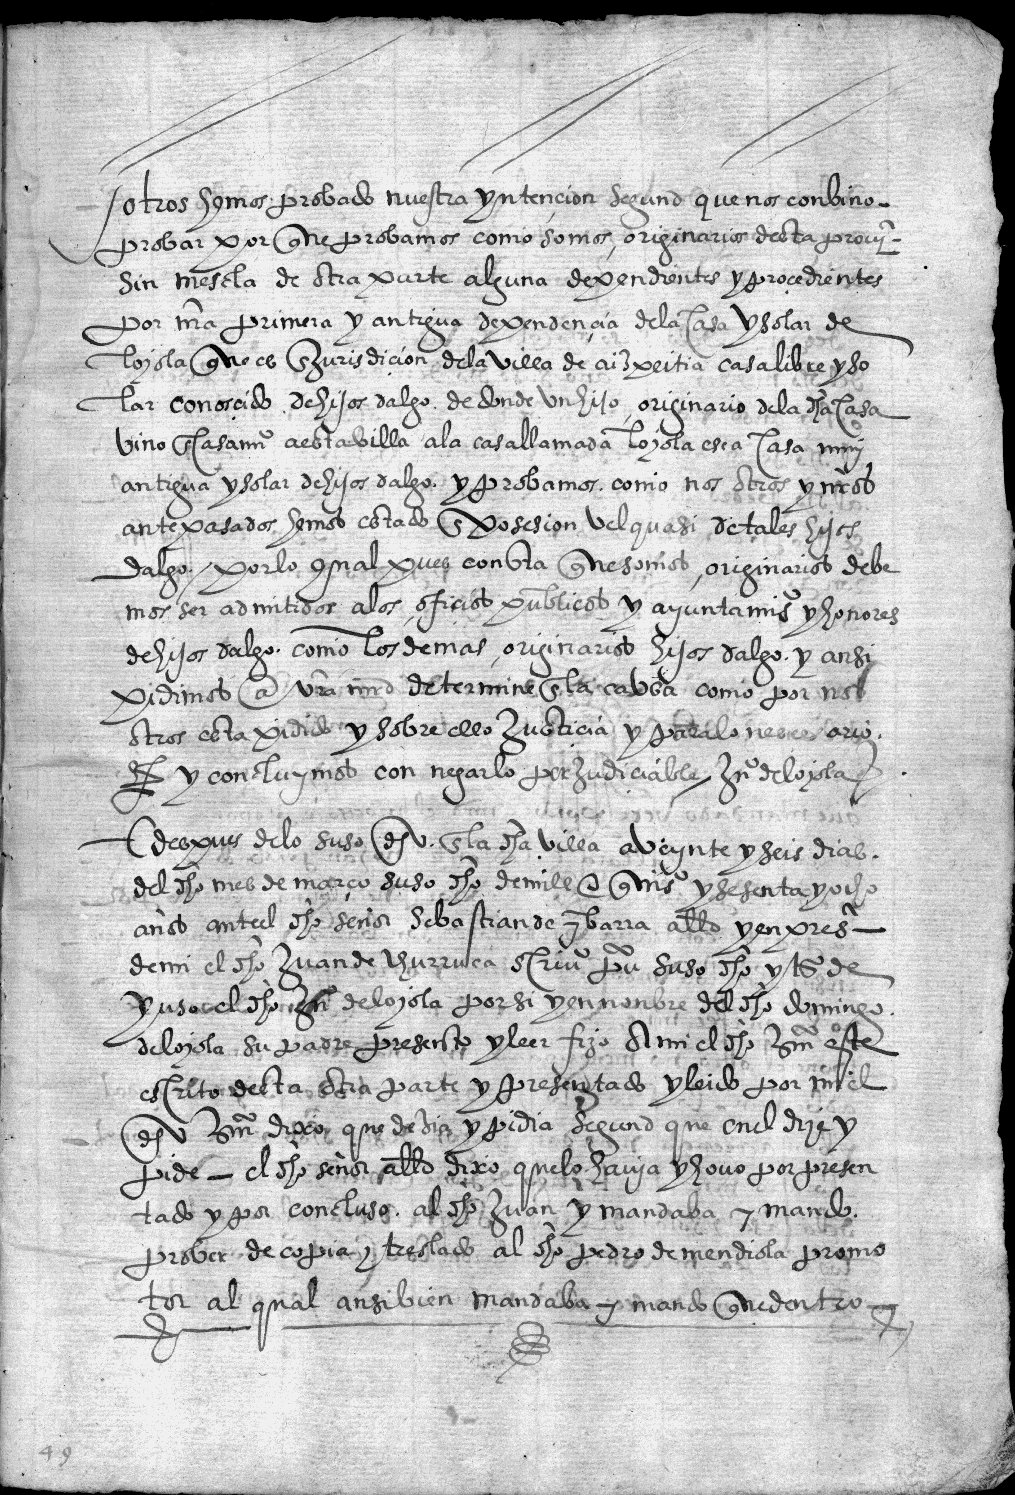 otros hemos probado nuestra yntencion segund que nos conbino
probar por que probamos como somos originarios desta provj
sin mescla de otra parte alguna dependientes y procedientes
por nra primera y antigua dependencia de la casa y solar de
loyola que es en jurisdicion de la villa de aizpeitia casa libre y so
lar conoscido de hijos dalgo de donde un hijo originario de la dha casa
vino en casamio a esta villa a la casa llamada loyola esea casa muy
antigua y solar de hijos dalgo y probamos como nos otros y nros
antepasados hemos estado en posesion vel quasi de tales hijos
dalgo por lo qual pues consta que somos originarios debe
mos ser admitidos a los oficios publicos y ayuntamios y honores
de hijos dalgo como los demas originarios hijos dalgo y ansi
pidimos a vra md determine en la causa como por nos
otros esta pidido y sobre ello justicia y para lo nescesario
y concluymos con negar lo perjudiciable Juo de loyola
despues de lo suso dho en la dha villa a veynte y seis dias
del dho mes de março suso dho de mill e quios y sesenta y ocho
años ante el dho señor sebastian de ybarra allde y en presa
de mi el dho Juan de churruca escrivo pu suso dho y tos de
yuso el dho Jun de loyola por si y en nonbre del dho domingo
de loyola su padre presento y leer fizo a mi el dho esno este
escrito desta otra parte y presentado y leido por mi el
dho esno dixo que desia y pidia segund que en el dize y
pide el dho señor allde dixo que lo havia y hovo por presen
tado y por concluso al dho Juan y mandaba y mando
prober de copia y treslado al dho pedro de mendiola promo
tor al qual ansi bien mandaba y mando que dentro
49